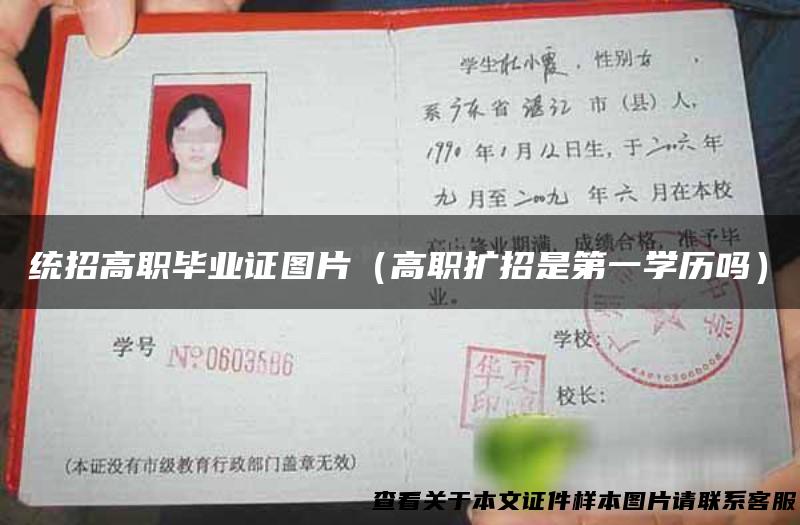 学生杜小霞，性别女，
系广东省湛江市（县）人，
1990年1月12日生，于二00六年
九月至二00九年六月在本校
统招高职毕业证图片（高职扩招是第一学历吗）
业。
学校：
学号 №0603586
校长：
（本证没有市级教育行政部门盖章无效）
查看关于本文证件样本图片请联系客服